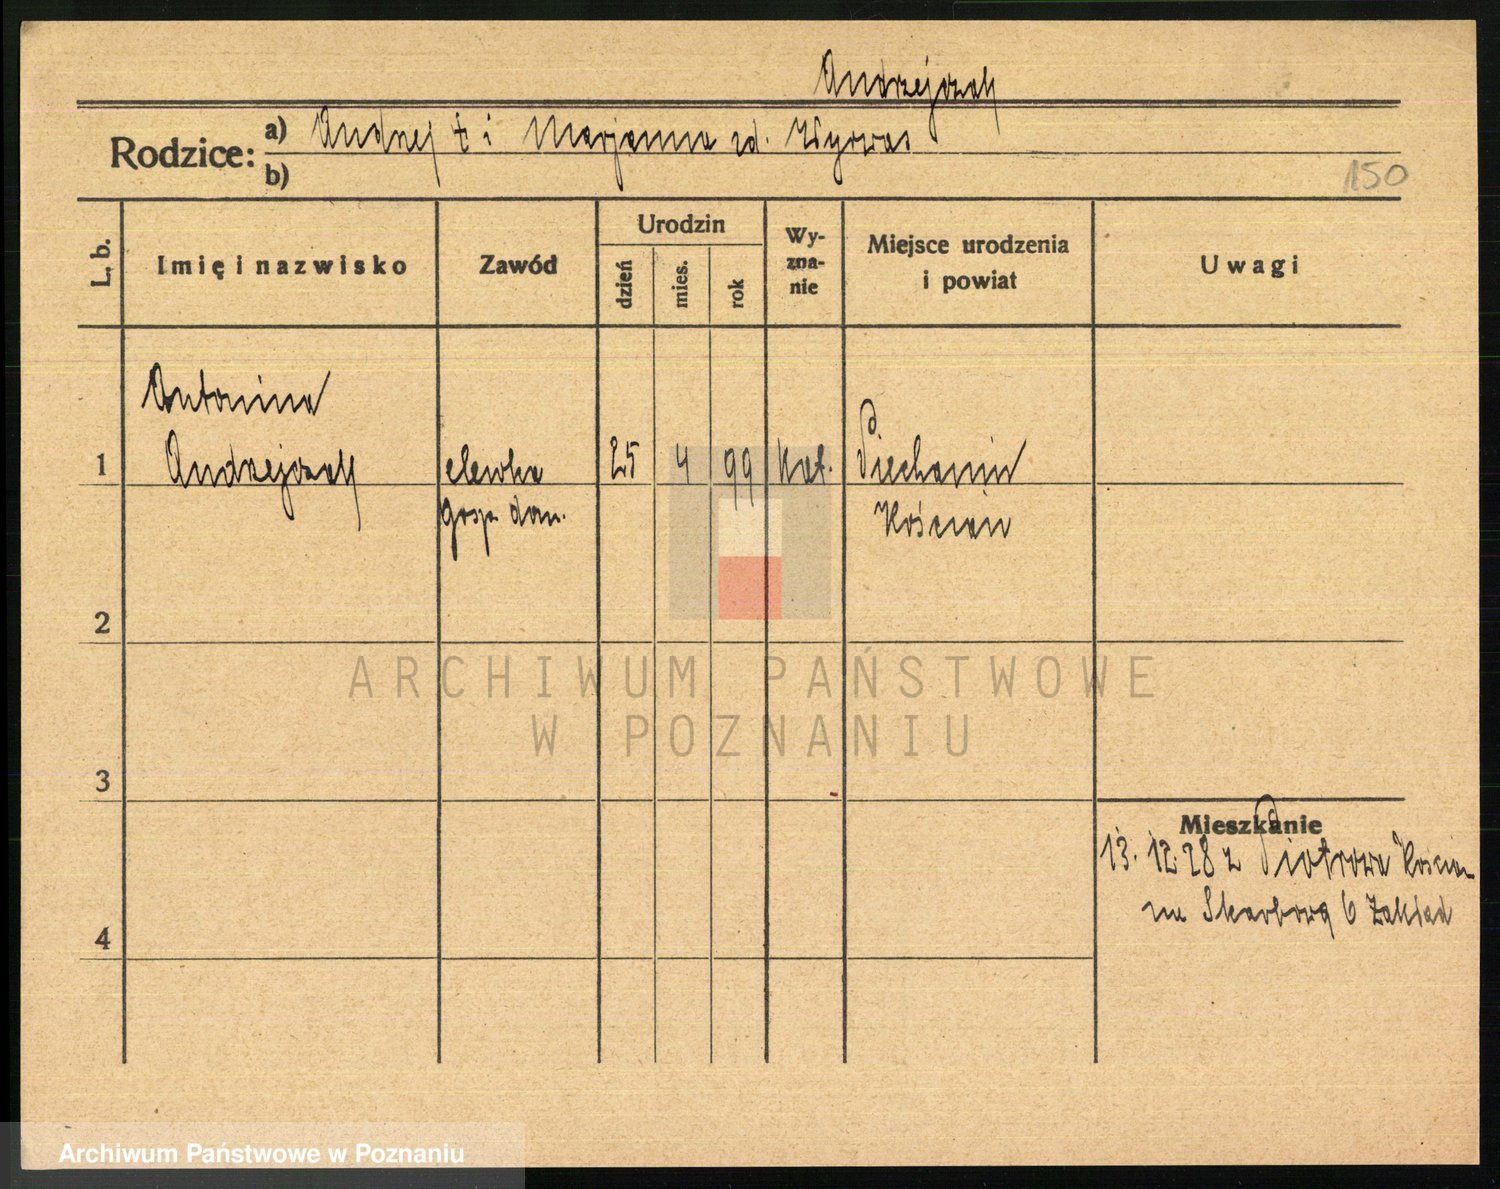 Andrzejczak
Rodzice: a) Andrzej † i Marjanna zd. Wyrwas
b)
150
L. b.
Imię i nazwisko
Zawód
Urodzin
dzień
mies.
rok
Wy-
zna-
nie
Miejsce urodzenia
i powiat
Uwagi
Antonina
1 Andrzejczak elewka 25 4 99 kat. Piechanin
gosp. dom. Kościan
2
ARCHIWUM PAŃSTWOWE
W POZNANIU
3
Mieszkanie
13. 12. 28 z Piotrowa Kościan
na Skarbową 6 Zakład
4
Archiwum Państwowe w Poznaniu